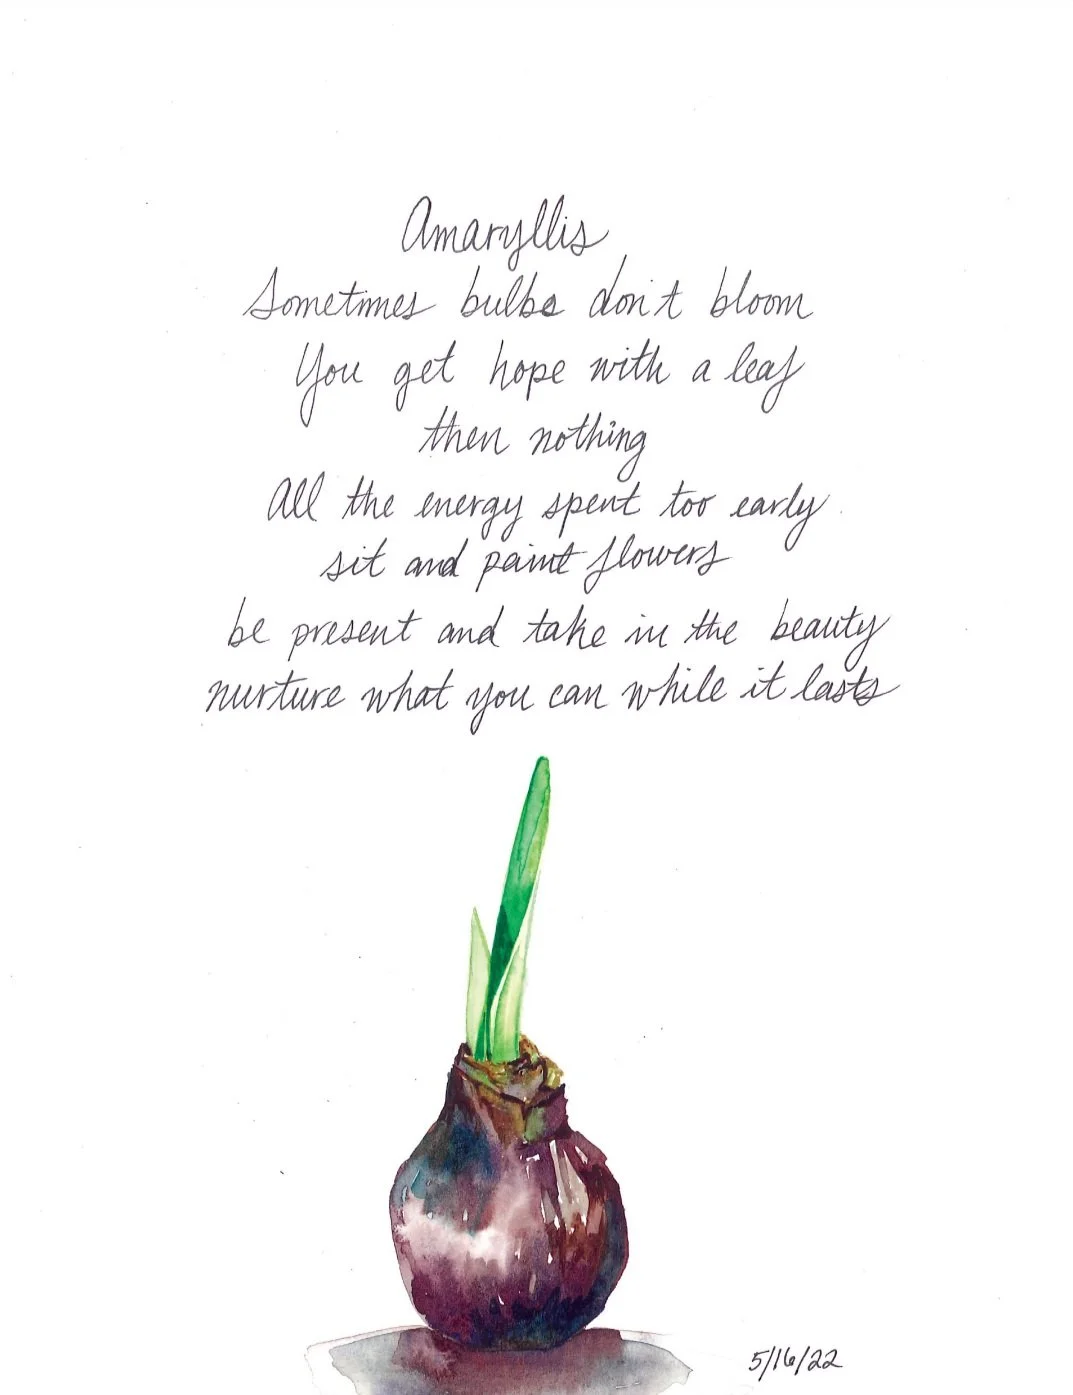 Amaryllis
Sometimes bulbs don't bloom
You get hope with a leaf
then nothing
All the energy spent too early
sit and paint flowers
be present and take in the beauty
nurture what you can while it lasts
5/16/22